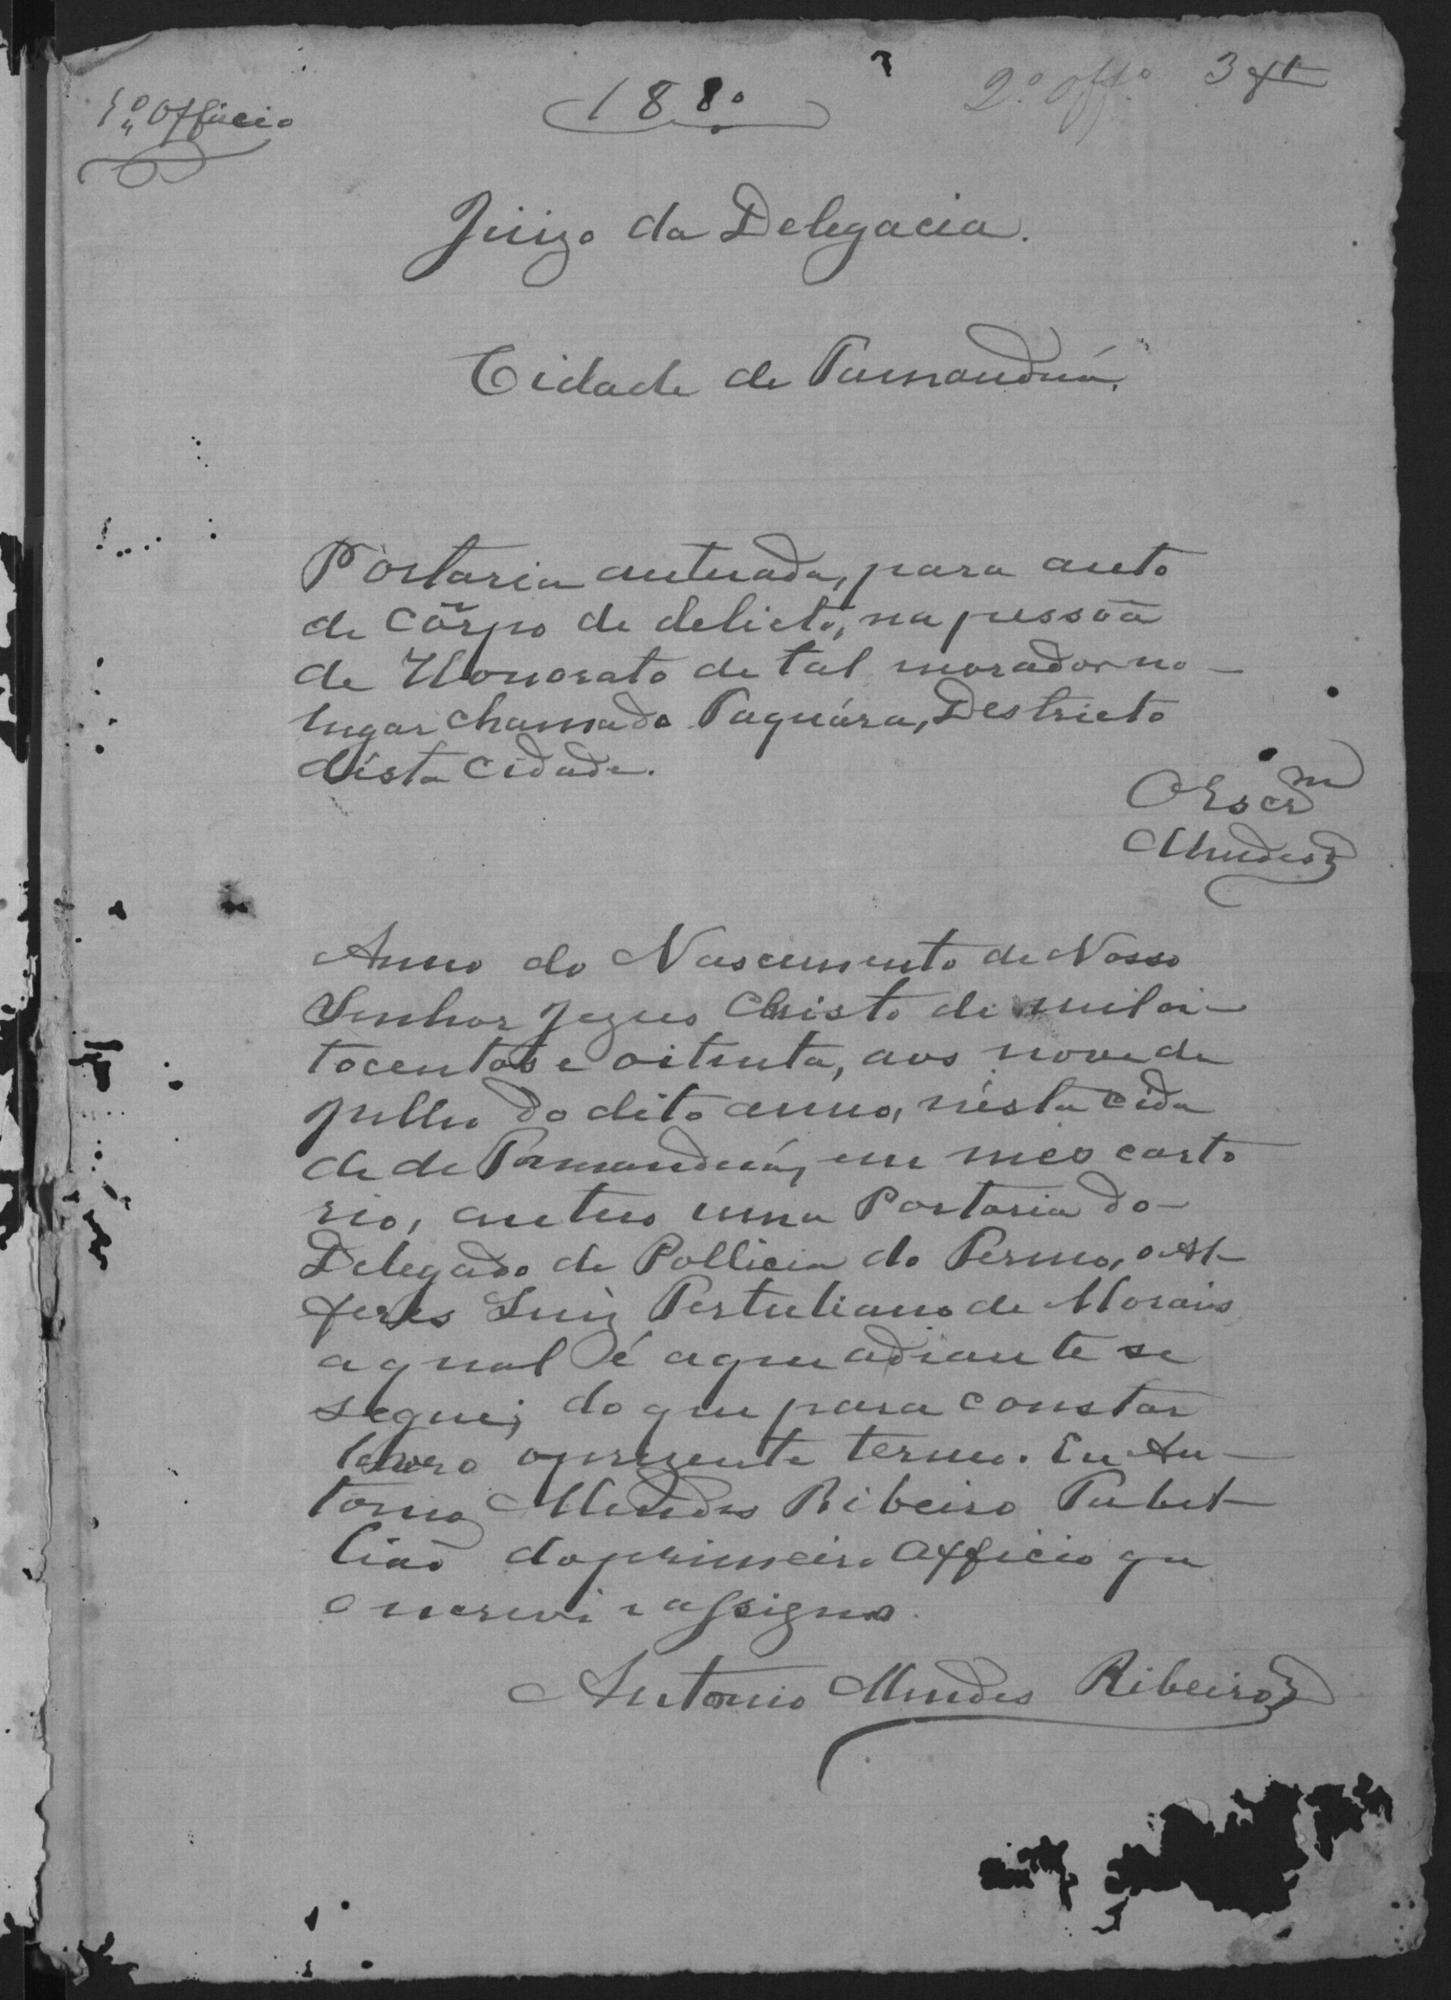 1º Officio
1880
2º Offº
Juizo da Delegacia.
Cidade de Parnanduá.
Portaria autuada, para auto
de côrpo de delicto, na pessôa
de Honorato de tal morador no
lugar chamado Taquára, Destricto
désta cidade.
O Escrm
Mendes
Anno do Nascimento de Nosso
Senhor Jezus Christo de mil oi-
tocentos e oitenta, aos nove de
Julho do dito anno, nésta cida
de de Parnanduá, em meo carto
rio, autuo uma Portaria do
Delegado de Pollicia do Termo, o Al-
feres Luiz Tertuliano de Morais
a qual é aque adiante se
segue; do que para constar
lavro o prezente termo. Eu An-
tonio Mendes Ribeiro Tabel-
lião do primeiro Officio que
o escrevi e assigno.
Antonio Mendes Ribeiro